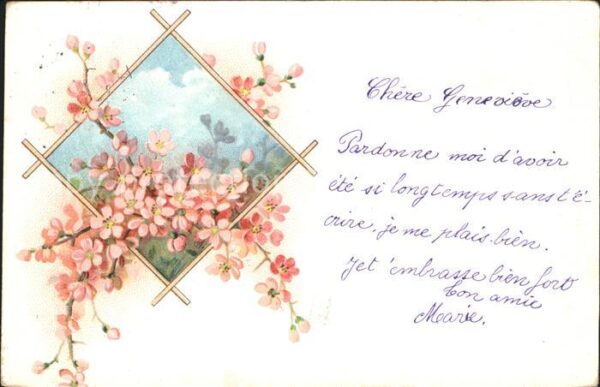 Chère Geneviève
Pardonne moi d'avoir
été si longtemps sans t'é-
crire, je me plais bien.
Je t'embrasse bien fort
ton amie
Marie.